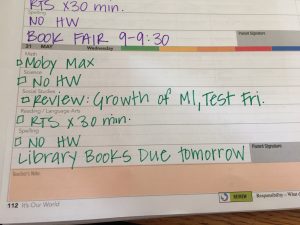 RTS x30 min.
NO HW
BOOK FAIR 9-9:30
Parent Signature
31 MAY Wednesday
Math
Moby Max
Science
NO HW
Social Studies
Review: Growth of MI, Test Fri.
Reading / Language Arts
RTS x 30 min.
Spelling
NO HW
Library Books Due tomorrow
Parent Signature
Teacher's Note:
112 It's Our World
REVIEW Responsibility—What